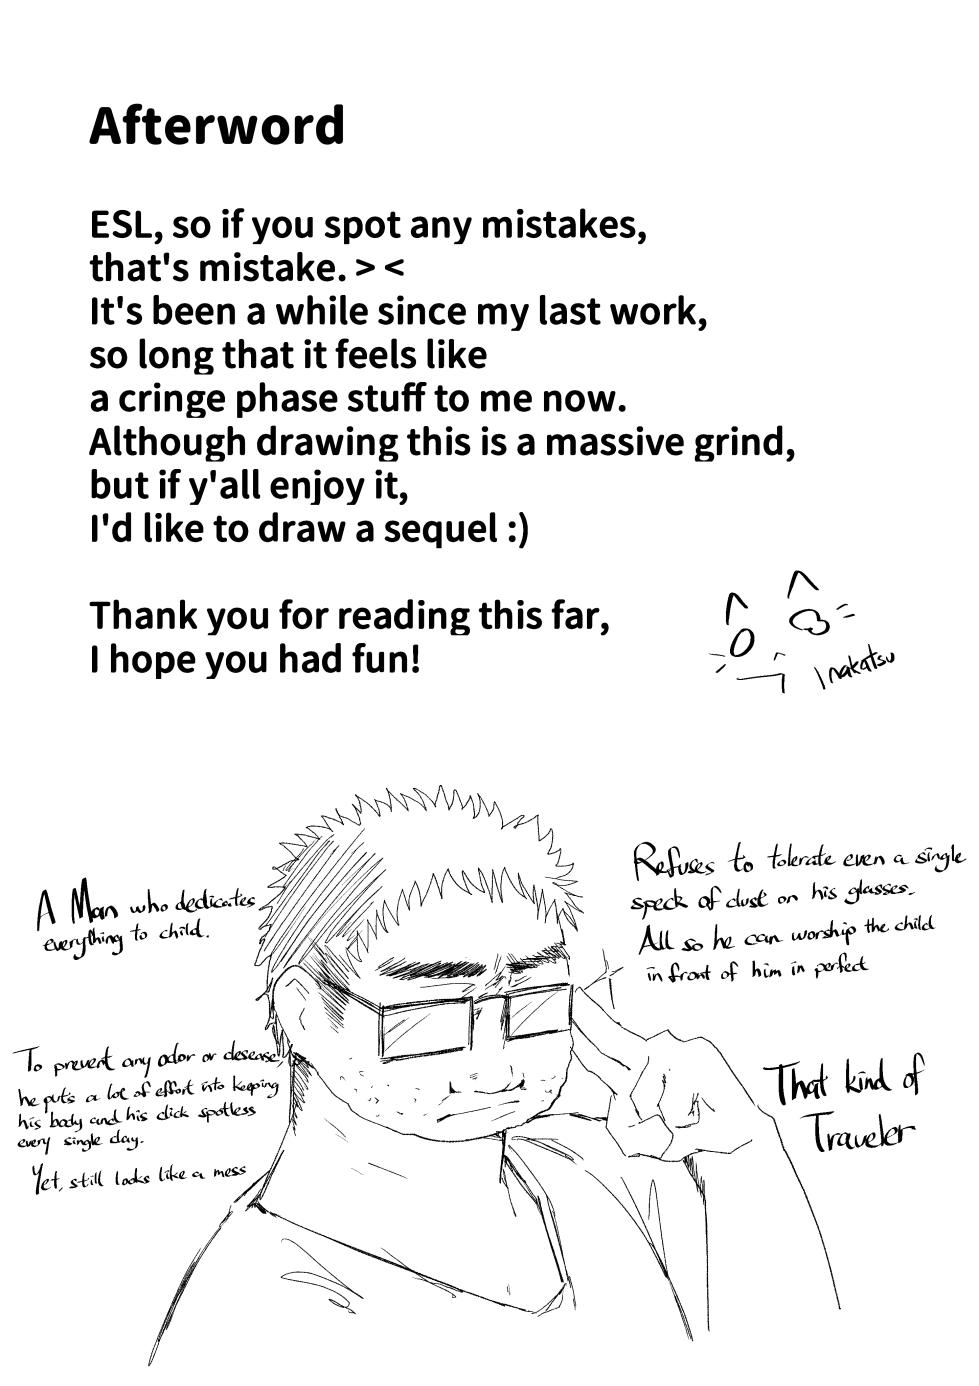 Afterword
ESL, so if you spot any mistakes,
that's mistake. > <
It's been a while since my last work,
so long that it feels like
a cringe phase stuff to me now.
Although drawing this is a massive grind,
but if y'all enjoy it,
I'd like to draw a sequel :)
Thank you for reading this far,
I hope you had fun!
Inakatsu
A Man who dedicates
everything to child.
Refuses to tolerate even a single
speck of dust on his glasses.
All so he can worship the child
in front of him in perfect
To prevent any odor or desease,
he puts a lot of effort into keeping
his body and his dick spotless
every single day.
Yet, still looks like a mess
That kind of
Traveler